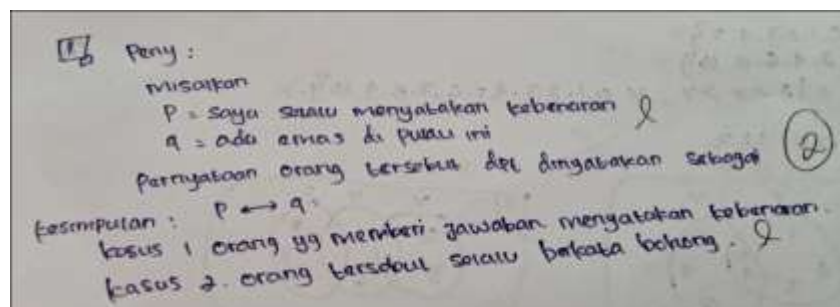 1. Peny :
misalkan
P = saya selalu menyatakan kebenaran
q = ada emas di pulau ini
Pernyataan orang tersebut dpt dinyatakan sebagai
2
P ↔ q.
kesimpulan :
kasus 1 orang yg memberi jawaban menyatakan kebenaran.
kasus 2. orang tersebut selalu berkata bohong.